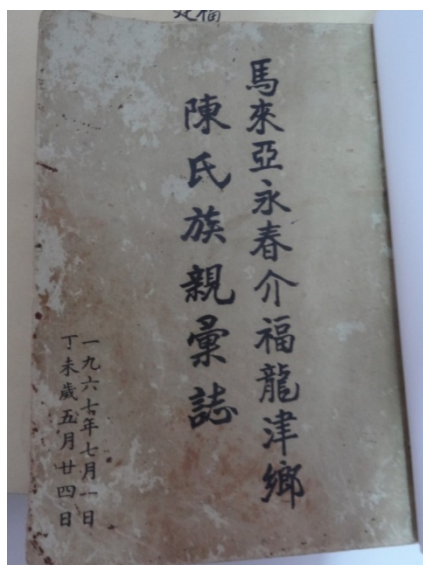 馬來亞永春介福龍津鄉
陳氏族親彙誌
一九六七年七月一日
丁未歲五月廿四日